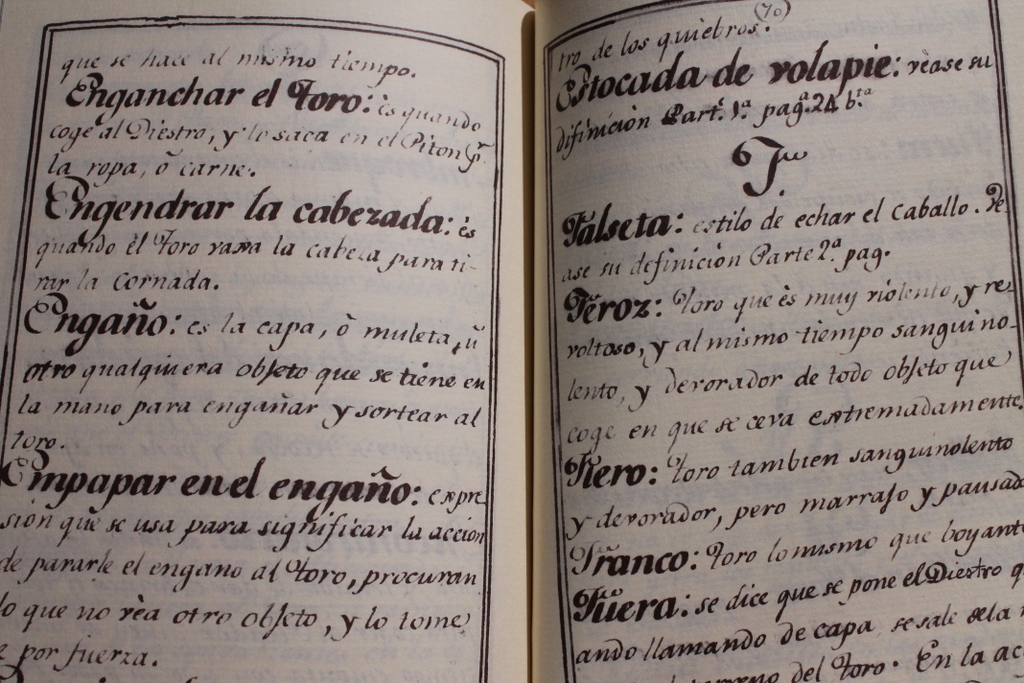 que se hace al mismo tiempo.
Enganchar el Toro: es quando
coge al Diestro, y lo saca en el Piton p.r
la ropa, ò carne.
Engendrar la cabezada: ès
quando èl Toro vaxa la cabeza para ti-
rar la cornada.
Engaño: es la capa, ò muleta, ù
otro qualquiera objeto que se tiene en
la mano para engañar y sortear al
toro.
Empapar en el engaño: expre
sion que se usa para significar la accion
de pararle el engano al Toro, procuran
lo que no vèa otro objeto, y lo tome
por fuerza.
(70)
tro de los quiebros.
Estocada de volapie: vèase su
difinicion Part.e 1.a pag.a 24 b.ta
F.
Falseta: estilo de echar el Caballo. Ve-
ase su definicion Parte 2.a pag.
Feroz: Toro que ès muy violento, y re
voltoso, y al mismo tiempo sanguino-
lento, y devorador de todo objeto que
coge en que se ceva extremadamente.
Fiero: Toro tambien sanguinolento
y devorador, pero marrajo y pausad
Franco: Toro lo mismo que boyant
Fuera: se dice que se pone el Diestro q
ando llamando de capa, se sale de la
del Toro. En la ac